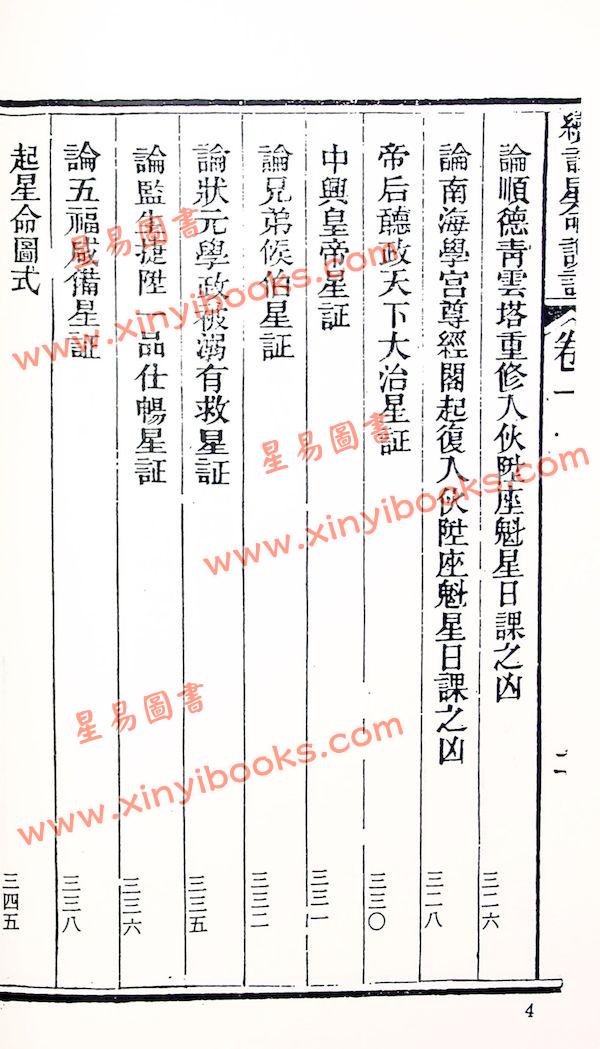 卷一
論順德青雲塔重修入伙陞座魁星日課之凶 三二六
論南海學宮尊經閣起復入伙陞座魁星日課之凶 三二八
帝后聽政天下大治星証 三三〇
中興皇帝星証 三三一
論兄弟候伯星証 三三二
論狀元學政被溺有救星証 三三五
論監生捷陞一品仕暢星証 三三六
論五福咸備星証 三三八
起星命圖式 三四五
4
星易圖書
www.xinyibooks.com
星易圖書
www.xinyibooks.com
星易圖書
www.xinyibooks.com